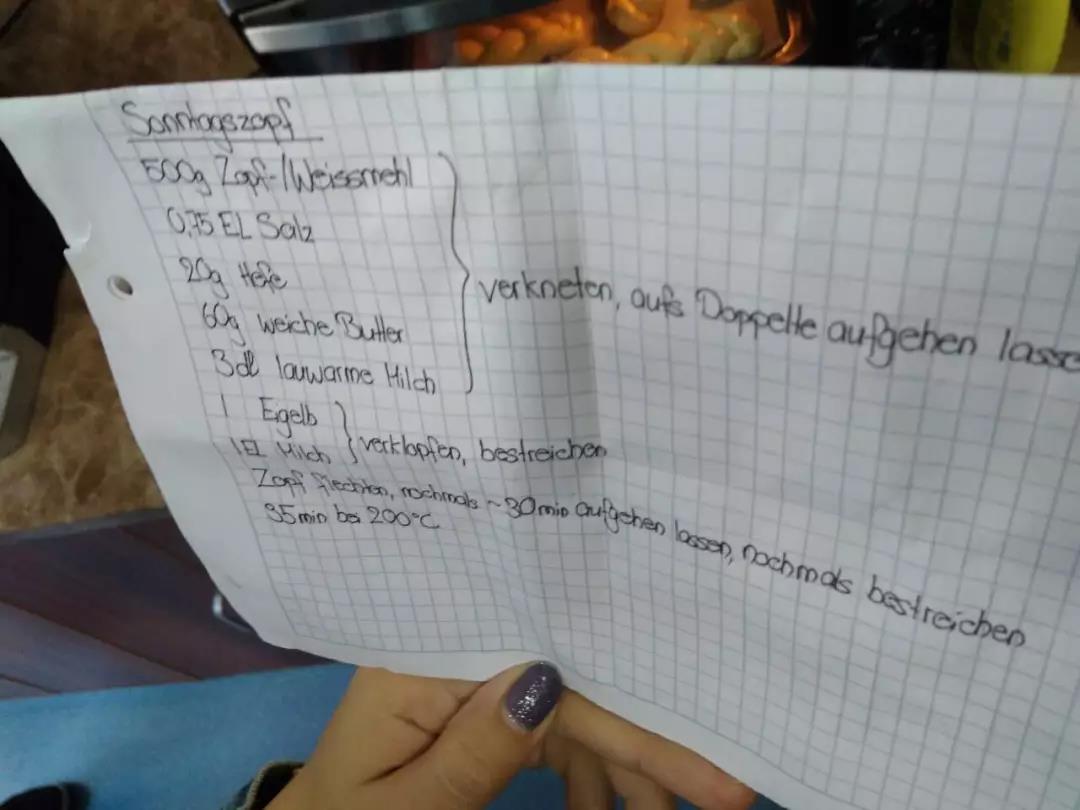 Sonntagszopf
500g Zopf-/Weissmehl
0,75 EL Salz
20g Hefe
60g weiche Butter
3dl lauwarme Milch
verkneten, aufs Doppelte aufgehen lasse
1 Eigelb
1 EL Milch
verklopfen, bestreichen
Zopf flechten, nochmals ~30min aufgehen lassen, nochmals bestreichen
35min bei 200°C